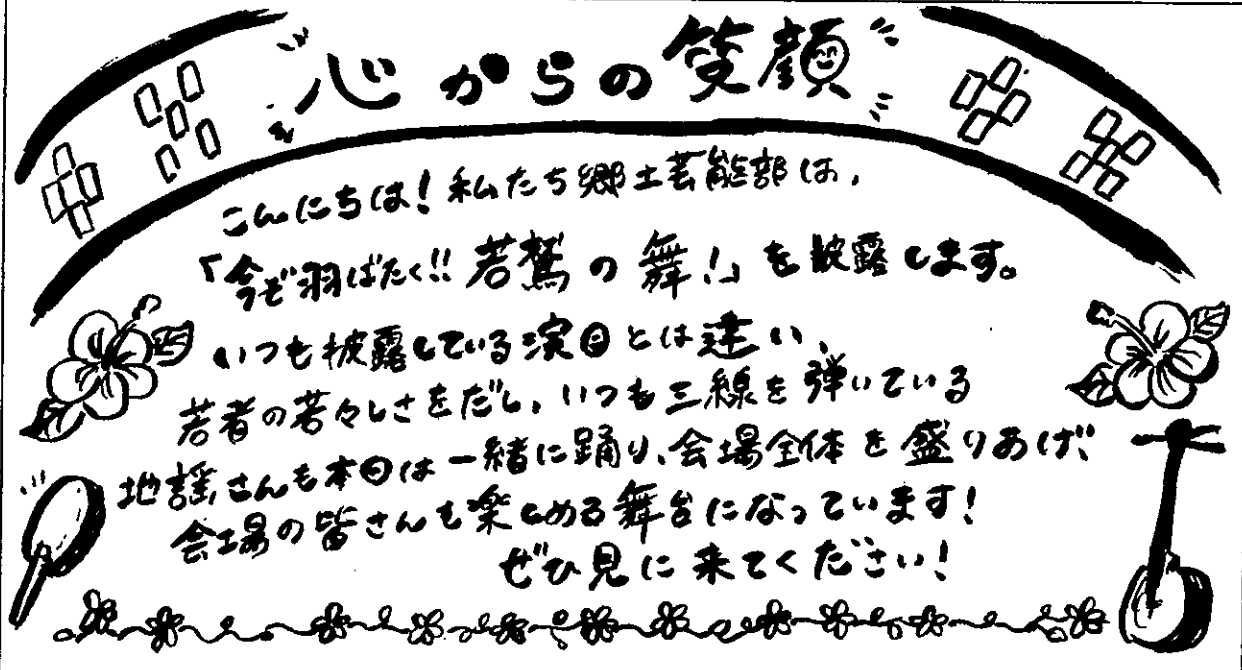 心からの笑顔
こんにちは!私たち郷土芸能部は、
「今ぞ羽ばたく!!若鷲の舞!」を披露します。
いつも披露している演目とは違い、
若者の若々しさをだし、いつも三線を弾いている
地謡さんも本日は一緒に踊り、会場全体を盛りあげ、
会場の皆さんも楽しめる舞台になっています!
ぜひ見に来てください!